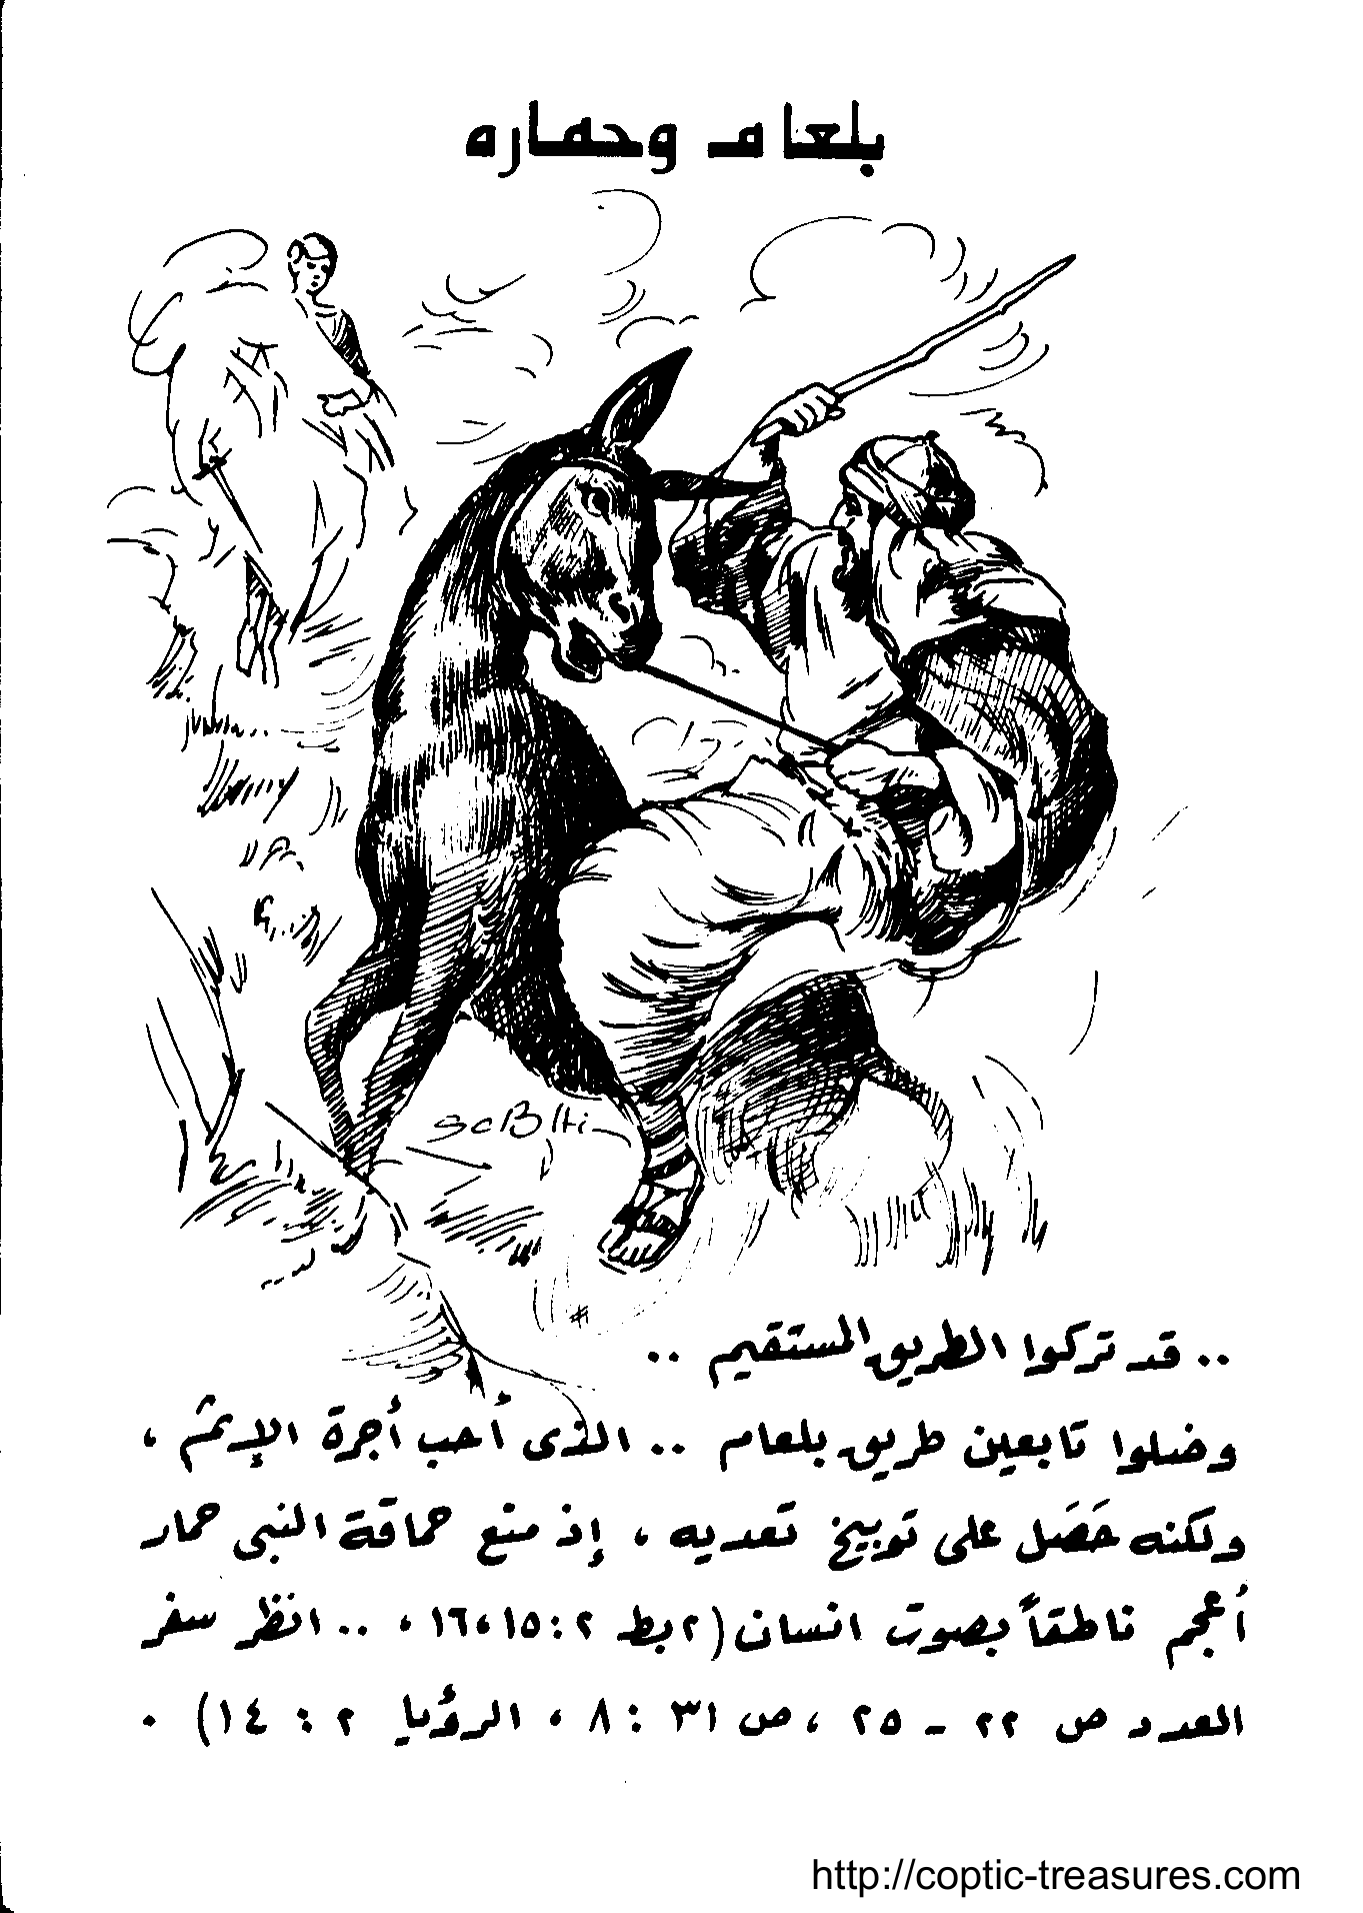 بلعام وحماره
scBlti
.. قد تركوا الطريق المستقيم ..
وضلوا تابعين طريق بلعام .. الذى أحب أجرة الإثم ،
ولكنه حَصَل على توبيخ تعديه ، إذ منع حماقة النبى حمار
أعجم ناطقاً بصوت انسان (٢بط ٢ : ١٥، ١٦ ، .. انظر سفر
العدد ص ٢٢ - ٢٥ ، ص ٣١ : ٨ ، الرؤيا ٢ : ١٤) .
http://coptic-treasures.com